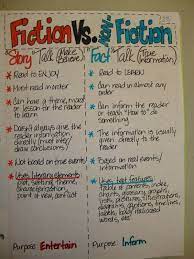 Fiction Vs. Non-Fiction
Story Talk (Make Believe)
Fact Talk (True Information)
Read to ENJOY
Must read in order
Can have a theme, moral or lesson for the reader to learn
Doesn't always give the reader information directly (must infer/draw conclusions)
Not based on true events
Uses literary elements: plot, setting, theme, characterization, point of view, conflict
Purpose: Entertain
Read to LEARN
Can read in almost any order
Can inform the reader or teach "How to" do something
The information is usually given directly to the reader
Based on real events/information
Uses text features:
Table of contents, index, charts, glossary, titles,
diagrams, captions, timelines,
Purpose: Inform